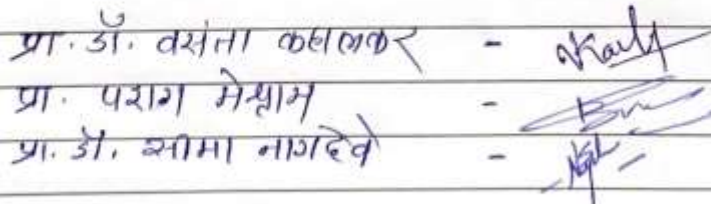 प्रा. डॉ. वसंता कहालकर -
प्रा. पराग मेश्राम -
प्रा. डॉ. सीमा नागदेवे -